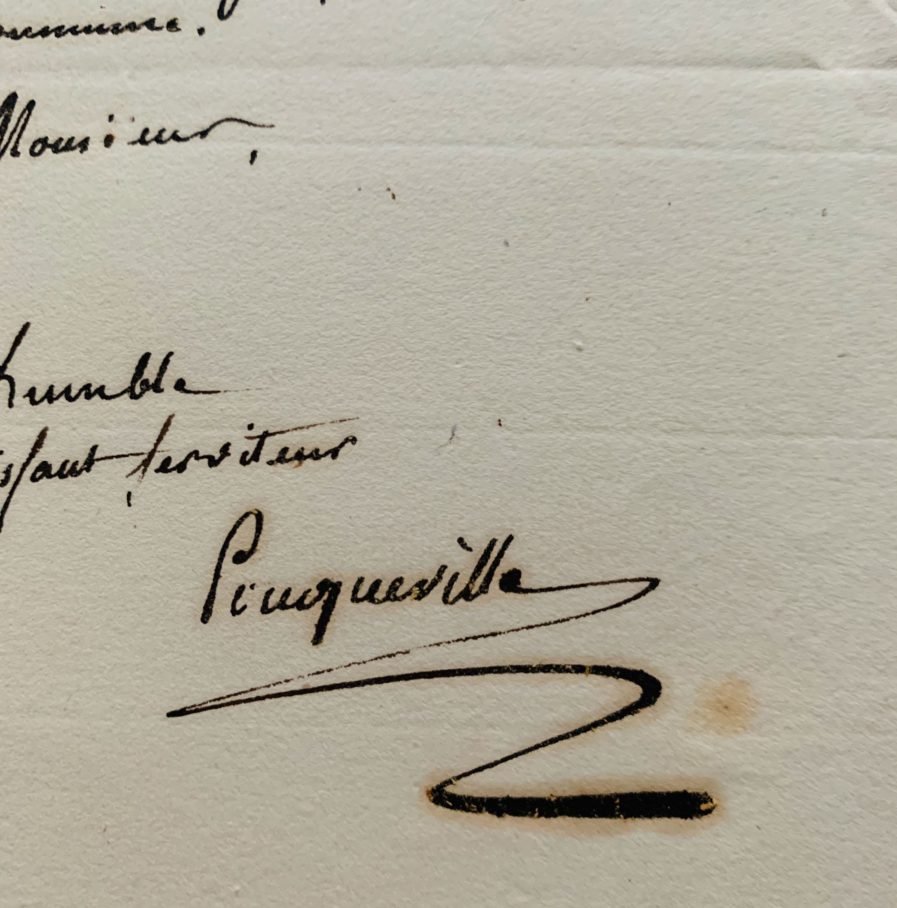 Monsieur,
humble
issant serviteur
Pouqueville